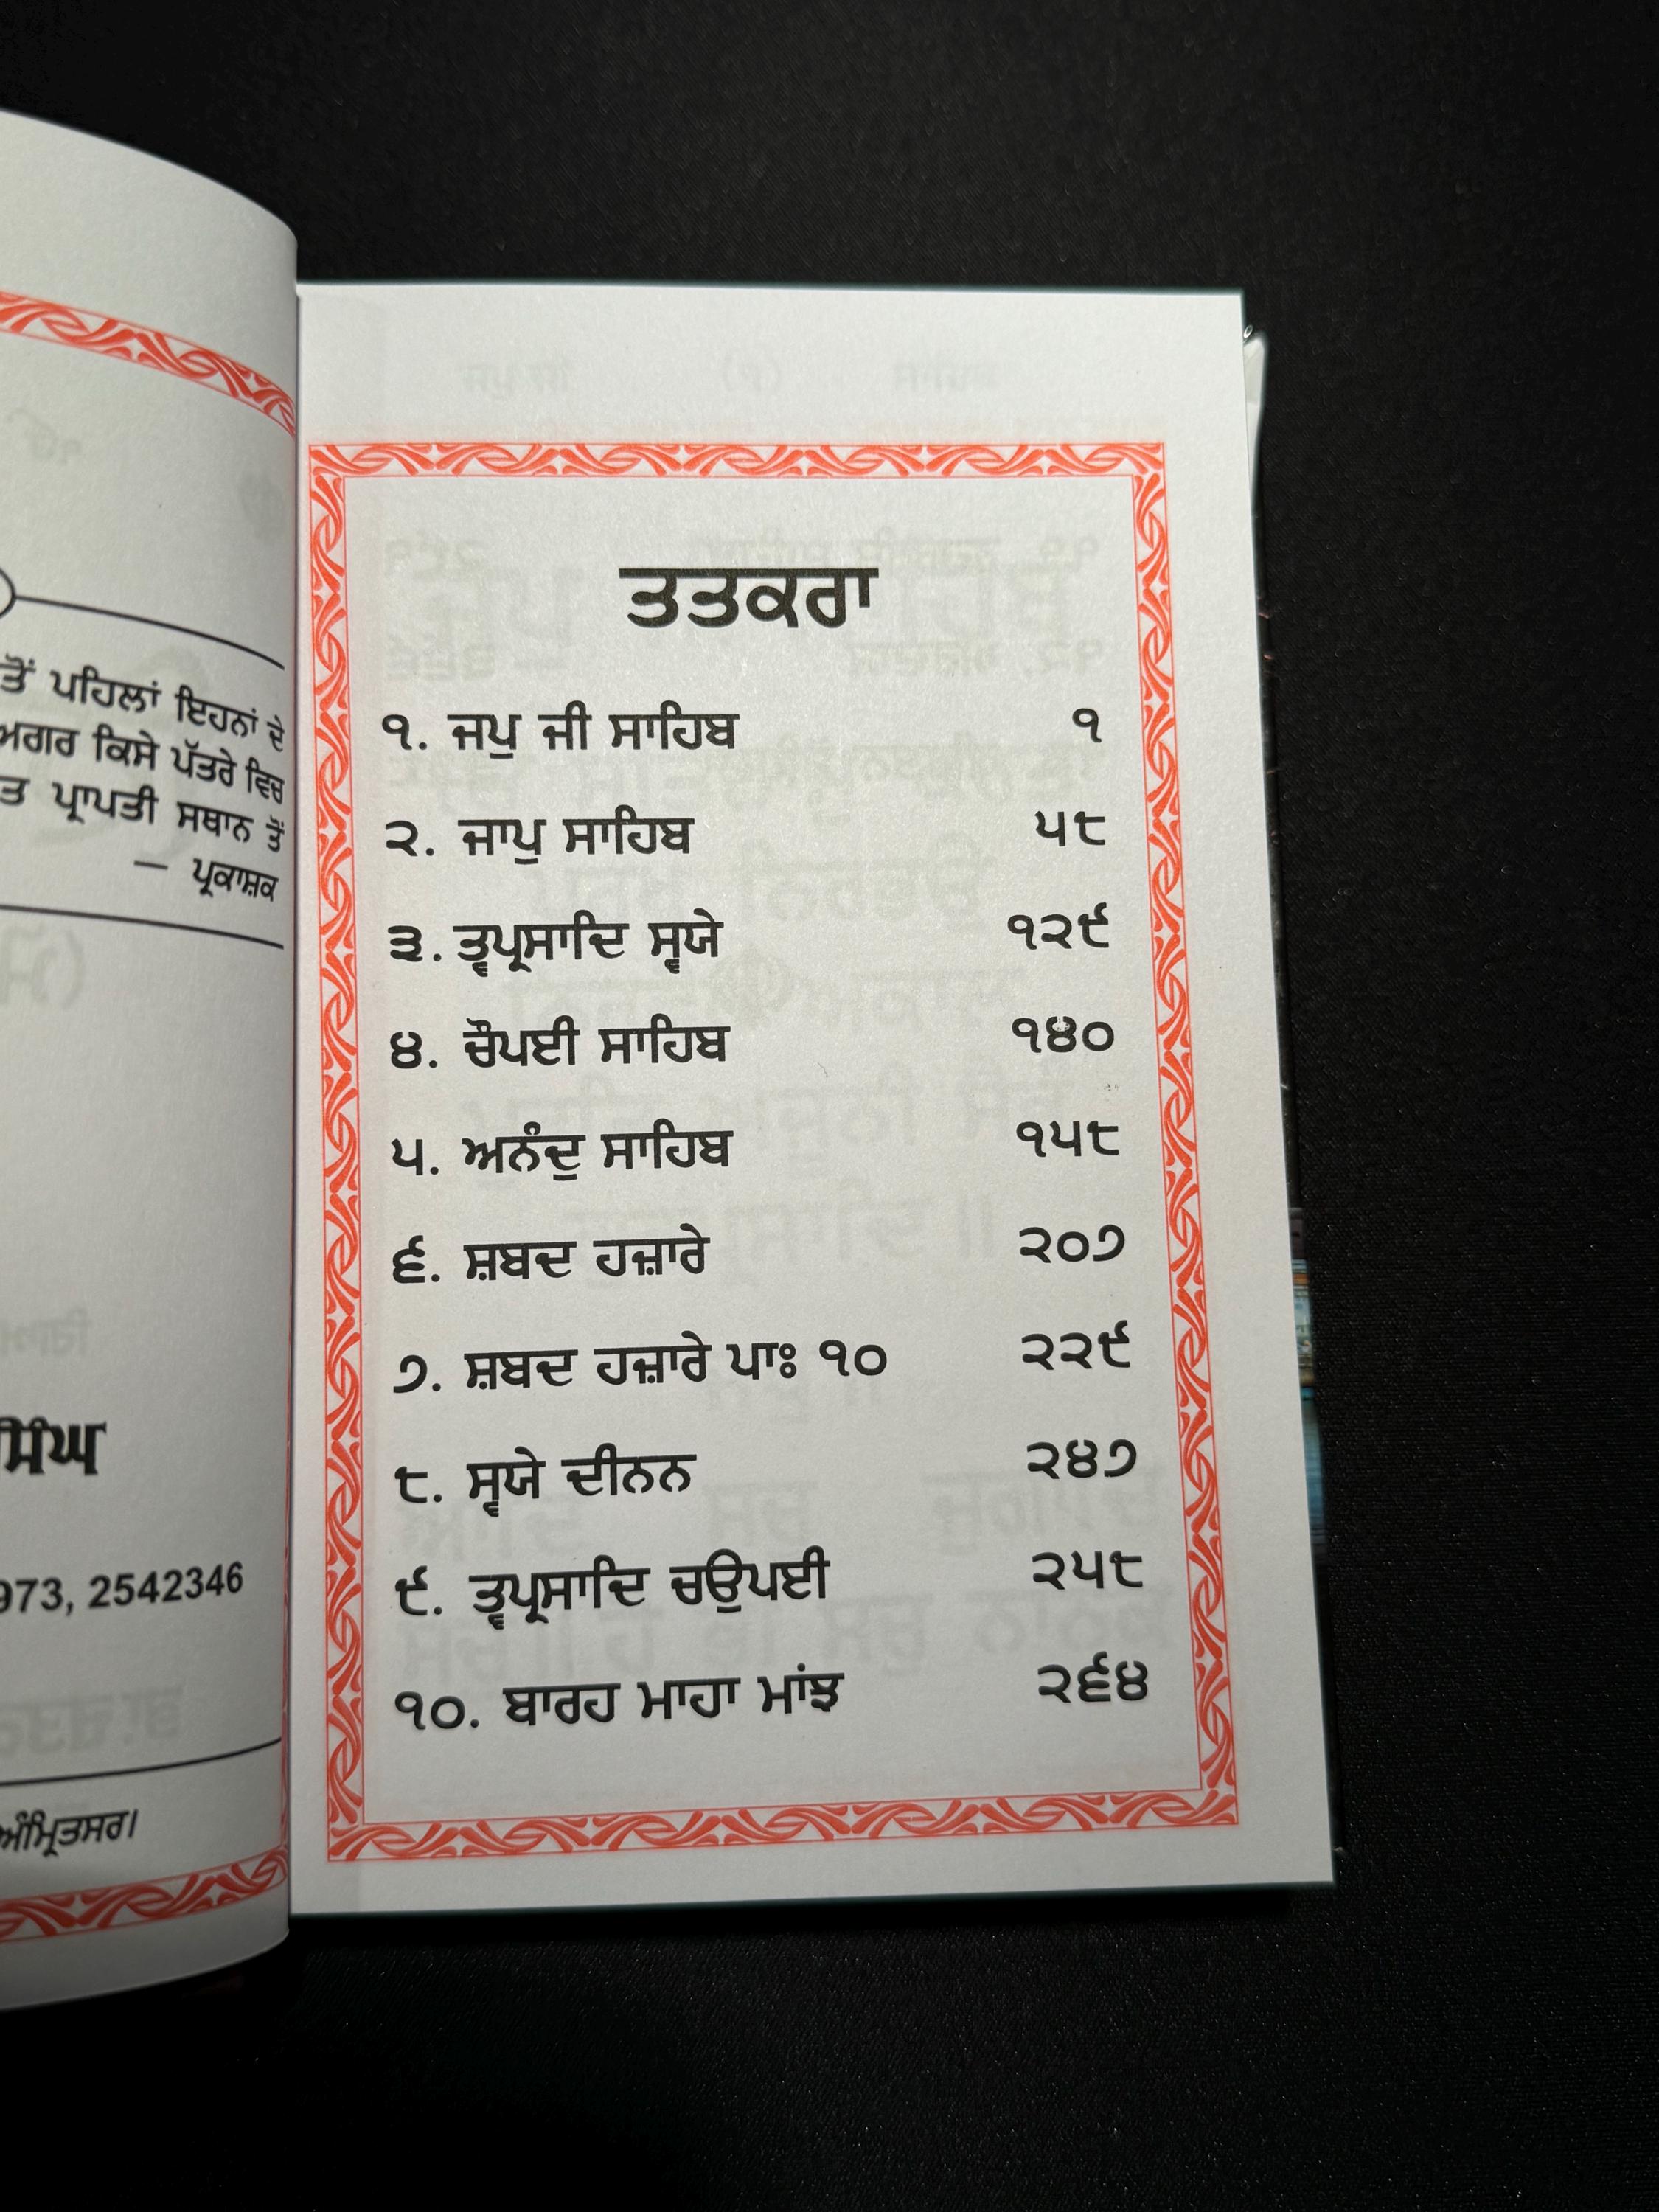 ਤੋਂ ਪਹਿਲਾਂ ਇਹਨਾਂ ਦੇ
ਅਗਰ ਕਿਸੇ ਪੱਤਰੇ ਵਿਚ
ਤ ਪ੍ਰਾਪਤੀ ਸਥਾਨ ਤੋਂ
— ਪ੍ਰਕਾਸ਼ਕ
ਸਿੰਘ
973, 2542346
ਅੰਮ੍ਰਿਤਸਰ।
ਤਤਕਰਾ
੧. ਜਪੁ ਜੀ ਸਾਹਿਬ ੧
੨. ਜਾਪੁ ਸਾਹਿਬ ੫੮
੩. ਤ੍ਵਪ੍ਰਸਾਦਿ ਸ੍ਵਯੇ ੧੨੯
੪. ਚੌਪਈ ਸਾਹਿਬ ੧੪੦
੫. ਅਨੰਦੁ ਸਾਹਿਬ ੧੫੮
੬. ਸ਼ਬਦ ਹਜ਼ਾਰੇ ੨੦੭
੭. ਸ਼ਬਦ ਹਜ਼ਾਰੇ ਪਾਃ ੧੦ ੨੨੯
੮. ਸ੍ਵਯੇ ਦੀਨਨ ੨੪੭
੯. ਤ੍ਵਪ੍ਰਸਾਦਿ ਚਉਪਈ ੨੫੮
੧੦. ਬਾਰਹ ਮਾਹਾ ਮਾਂਝ ੨੬੪